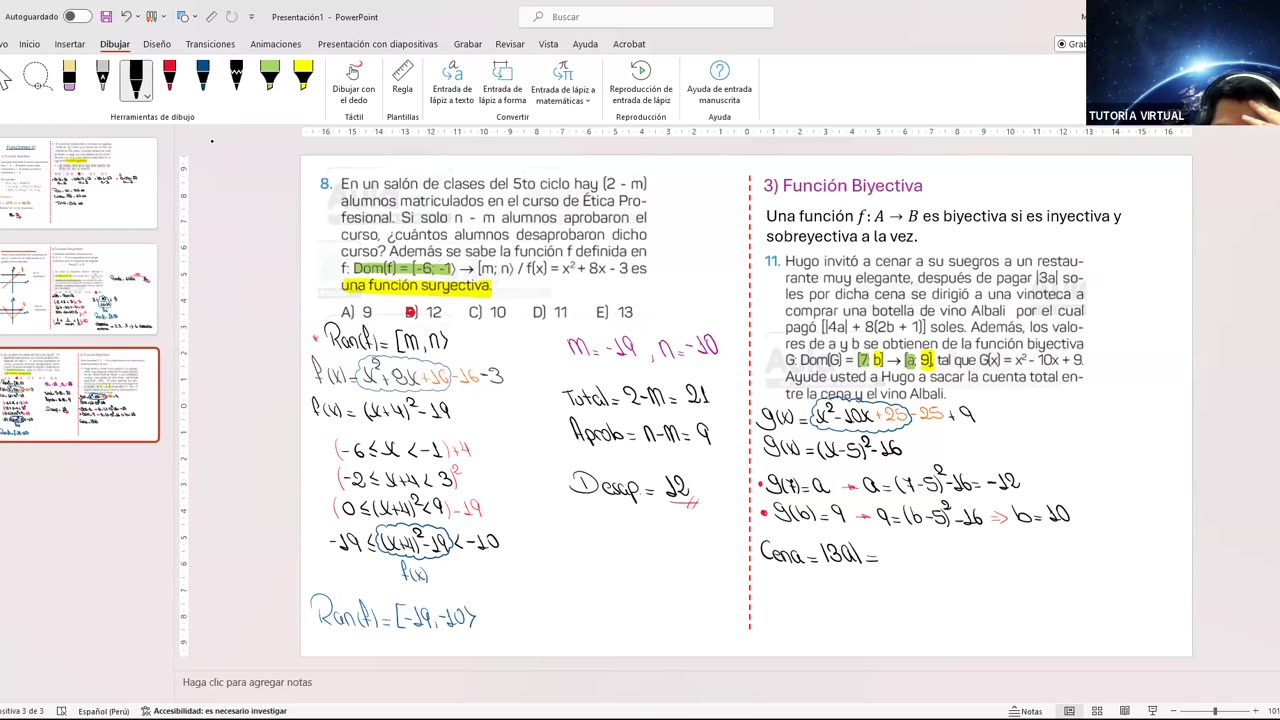 Autoguardado
Presentación1 - PowerPoint
Buscar
Inicio Insertar Dibujar Diseño Transiciones Animaciones Presentación con diapositivas Grabar Revisar Vista Ayuda Acrobat
Dibujar con el dedo
Regla
Entrada de lápiz a texto
Entrada de lápiz a forma
Entrada de lápiz a matemáticas
Reproducción de entrada de lápiz
Ayuda de entrada manuscrita
Herramientas de dibujo
Táctil
Plantillas
Convertir
Reproducción
Ayuda
TUTORÍA VIRTUAL
8. En un salón de clases del 5to ciclo hay (2 - m)
alumnos matriculados en el curso de Ética Pro-
fesional. Si solo n - m alumnos aprobaron el
curso, ¿cuántos alumnos desaprobaron dicho
curso? Además se sabe la función f definida en
f: Dom(f) = [-6, -1⟩ → [m, n⟩ / f(x) = x² + 8x - 3 es
una función suryectiva.
A) 9 B) 12 C) 10 D) 11 E) 13
* Ran(f) = [m, n⟩
f(x) = x²+8x+16-16-3
f(x) = (x+4)²-19
(-6 ≤ x < -1)+4
(-2 ≤ x+4 < 3)²
(0 ≤ (x+4)² < 9)-19
-19 ≤ (x+4)²-19 < -10
f(x)
Ran(f) = [-19, -10⟩
m = -19 , n = -10
Total = 2-m = 21
Aprob = n-m = 9
Desap = 12
3) Función Biyectiva
Una función f: A → B es biyectiva si es inyectiva y
sobreyectiva a la vez.
11. Hugo invitó a cenar a su suegros a un restau-
rante muy elegante, después de pagar |3a| so-
les por dicha cena se dirigió a una vinoteca a
comprar una botella de vino Albali por el cual
pagó [|4a| + 8(2b + 1)] soles. Además, los valo-
res de a y b se obtienen de la función biyectiva
Dom(G) = [7, b⟩ → [a, 9⟩, tal que G(x) = x² - 10x + 9.
Ayude usted a Hugo a sacar la cuenta total en-
tre la cena y el vino Albali.
g(x) = x²-10x+25-25+9
g(x) = (x-5)²-16
• g(7) = a → a = (7-5)²-16 = -12
• g(b) = 9 → 9 = (b-5)²-16 ⇒ b = 10
Cena = |3a| =
Haga clic para agregar notas
Español (Perú)
Accesibilidad: es necesario investigar
Notas